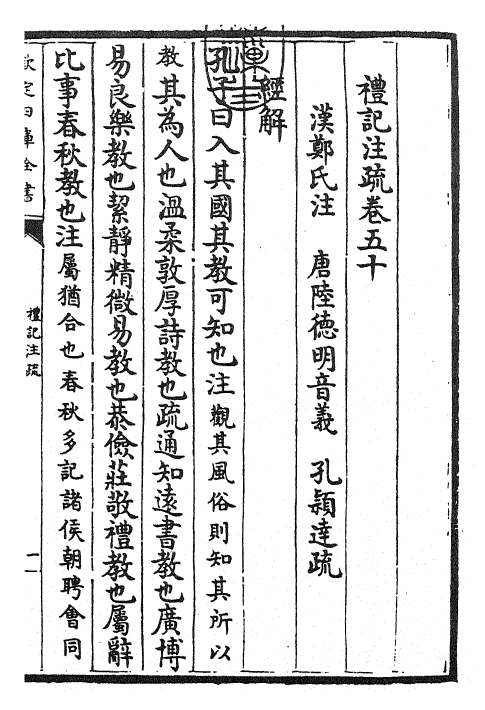 禮記注疏卷五十
漢鄭氏注 唐陸德明音義 孔穎達疏
經解
孔子曰入其國其教可知也注觀其風俗則知其所以
教其為人也溫柔敦厚詩教也疏通知遠書教也廣博
易良樂教也絜靜精微易教也恭儉莊敬禮教也屬辭
比事春秋教也注屬猶合也春秋多記諸侯朝聘會同
欽定四庫全書
禮記注疏
一